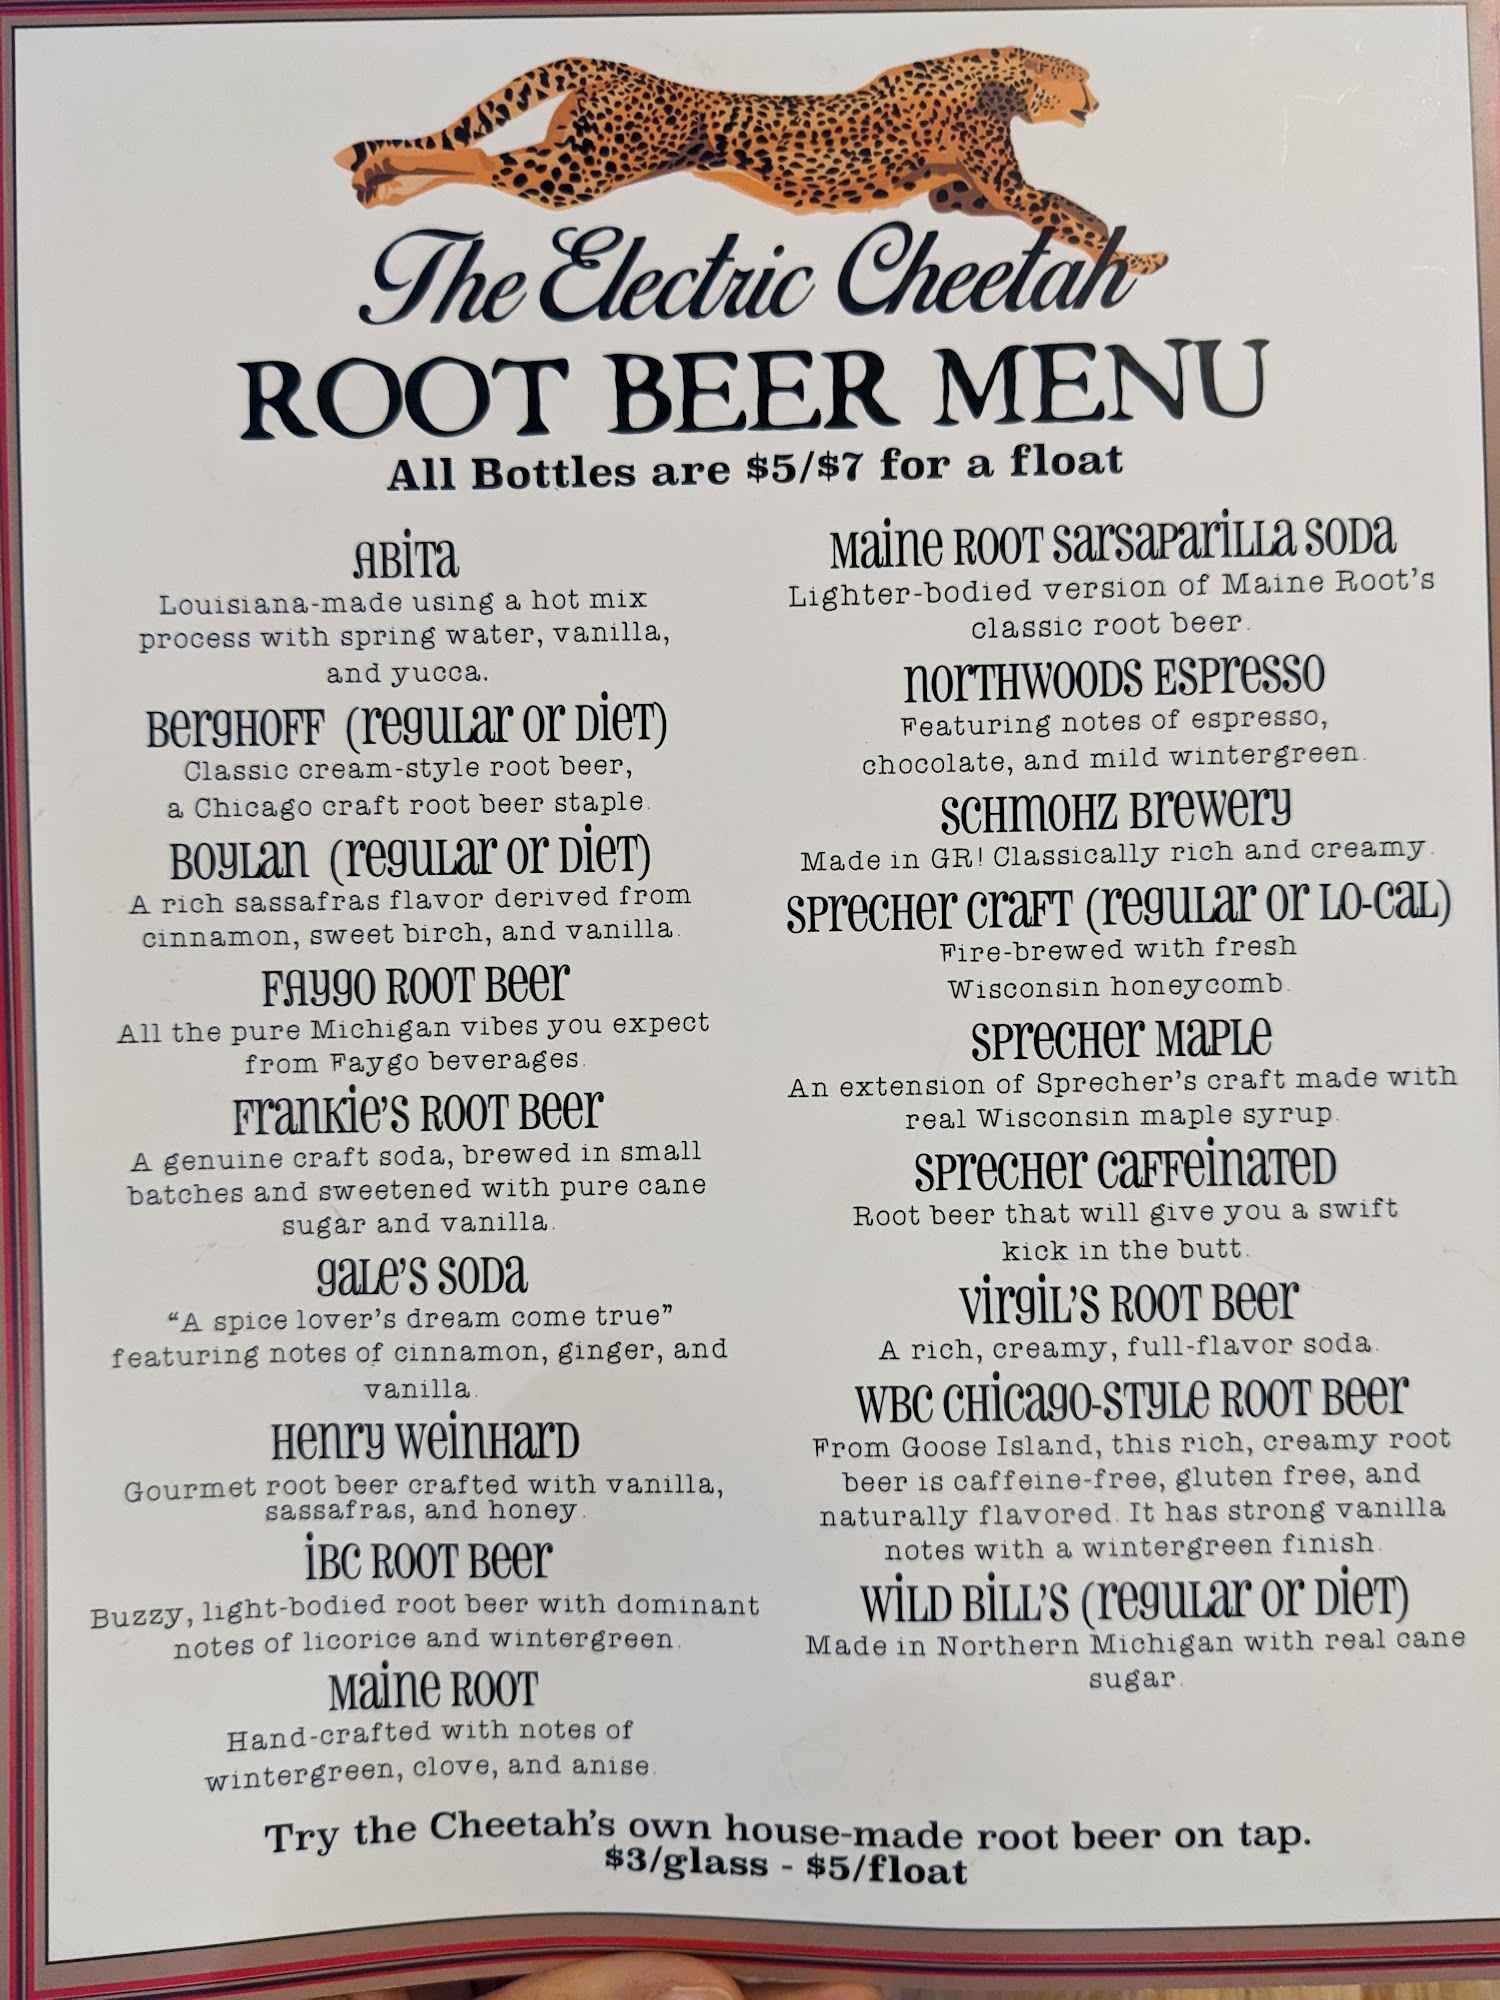 The Electric Cheetah
ROOT BEER MENU
All Bottles are $5/$7 for a float
ABiTa
Louisiana-made using a hot mix
process with spring water, vanilla,
and yucca.
BergHOFF (regular or Diet)
Classic cream-style root beer,
a Chicago craft root beer staple.
Boylan (regular or Diet)
A rich sassafras flavor derived from
cinnamon, sweet birch, and vanilla.
Faygo Root Beer
All the pure Michigan vibes you expect
from Faygo beverages.
Frankie's Root Beer
A genuine craft soda, brewed in small
batches and sweetened with pure cane
sugar and vanilla.
gale's soda
“A spice lover's dream come true”
featuring notes of cinnamon, ginger, and
vanilla.
Henry Weinhard
Gourmet root beer crafted with vanilla,
sassafras, and honey.
iBC Root Beer
Buzzy, light-bodied root beer with dominant
notes of licorice and wintergreen.
Maine Root
Hand-crafted with notes of
wintergreen, clove, and anise.
Maine Root Sarsaparilla Soda
Lighter-bodied version of Maine Root's
classic root beer.
Northwoods Espresso
Featuring notes of espresso,
chocolate, and mild wintergreen.
Schmohz Brewery
Made in GR! Classically rich and creamy.
Sprecher Craft (regular or Lo-Cal)
Fire-brewed with fresh
Wisconsin honeycomb.
Sprecher Maple
An extension of Sprecher's craft made with
real Wisconsin maple syrup.
Sprecher Caffeinated
Root beer that will give you a swift
kick in the butt.
Virgil's Root Beer
A rich, creamy, full-flavor soda.
WBC Chicago-Style Root Beer
From Goose Island, this rich, creamy root
beer is caffeine-free, gluten free, and
naturally flavored. It has strong vanilla
notes with a wintergreen finish.
Wild Bill's (regular or Diet)
Made in Northern Michigan with real cane
sugar.
Try the Cheetah's own house-made root beer on tap.
$3/glass - $5/float